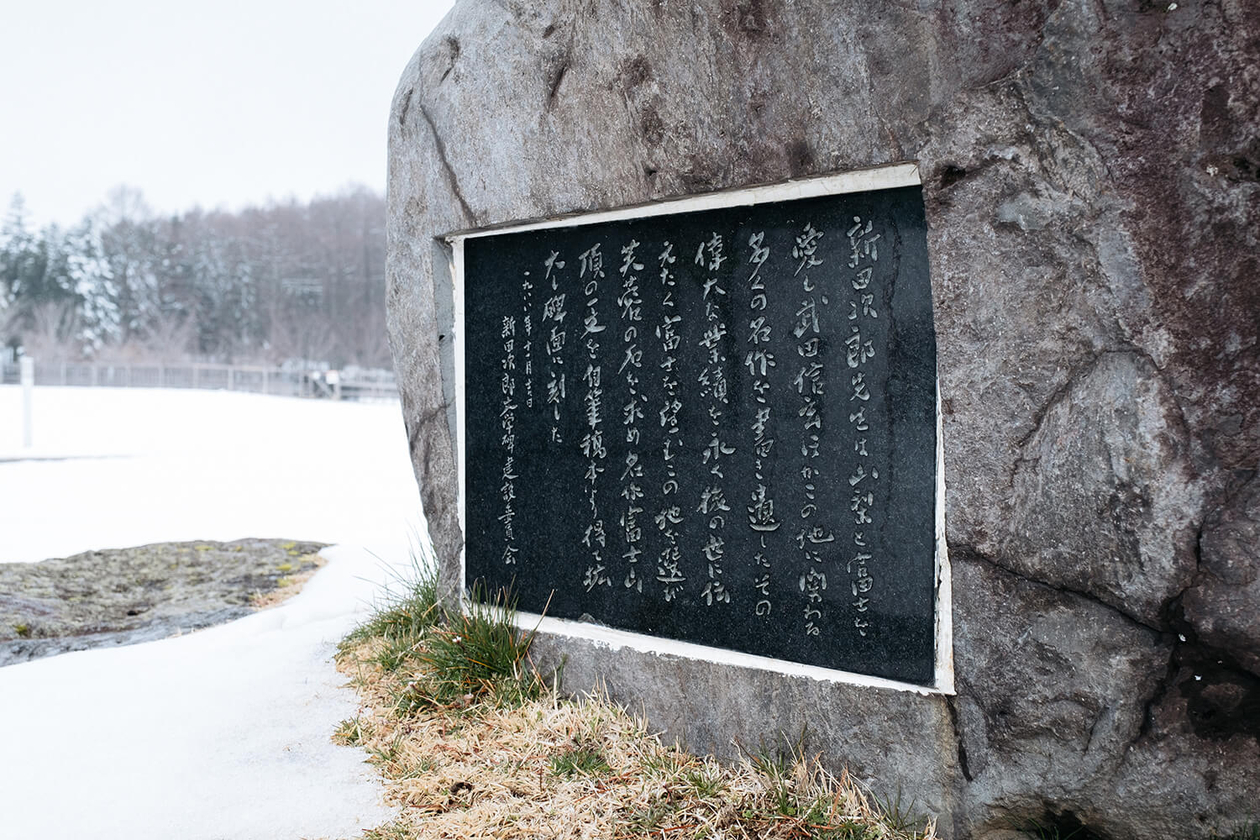 新田次郎先生は山梨と富士を
愛し武田信玄ほかこの地に関わる
多くの名作を書き遺したその
偉大な業績を永く後の世に伝
えたく富士を望むこの地を選び
芙蓉の石を求め名作富士山
頂の一文を自筆稿本より得て拡
大し碑面に刻した
新田次郎文学碑建設委員会